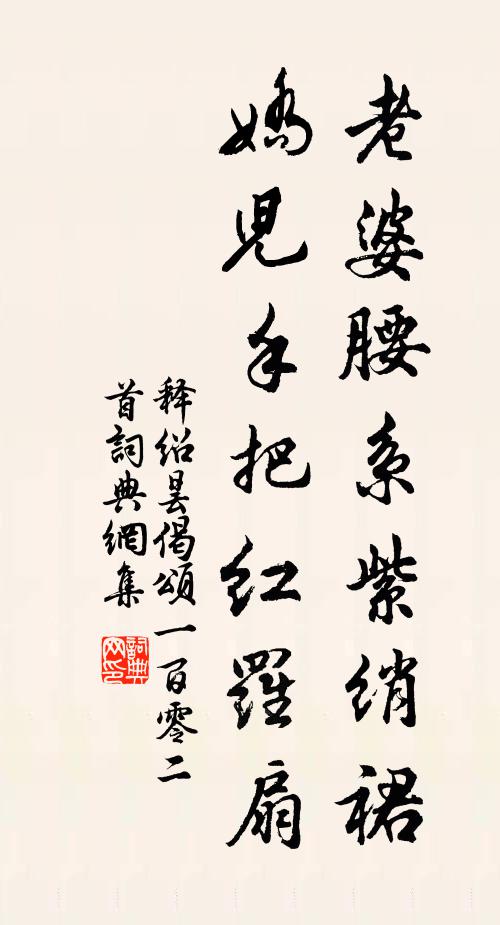 老婆腰系紫绡裙
嬌児手把红羅扇
释绍昙偈頌一百零二
首詞典網集
詞典网印